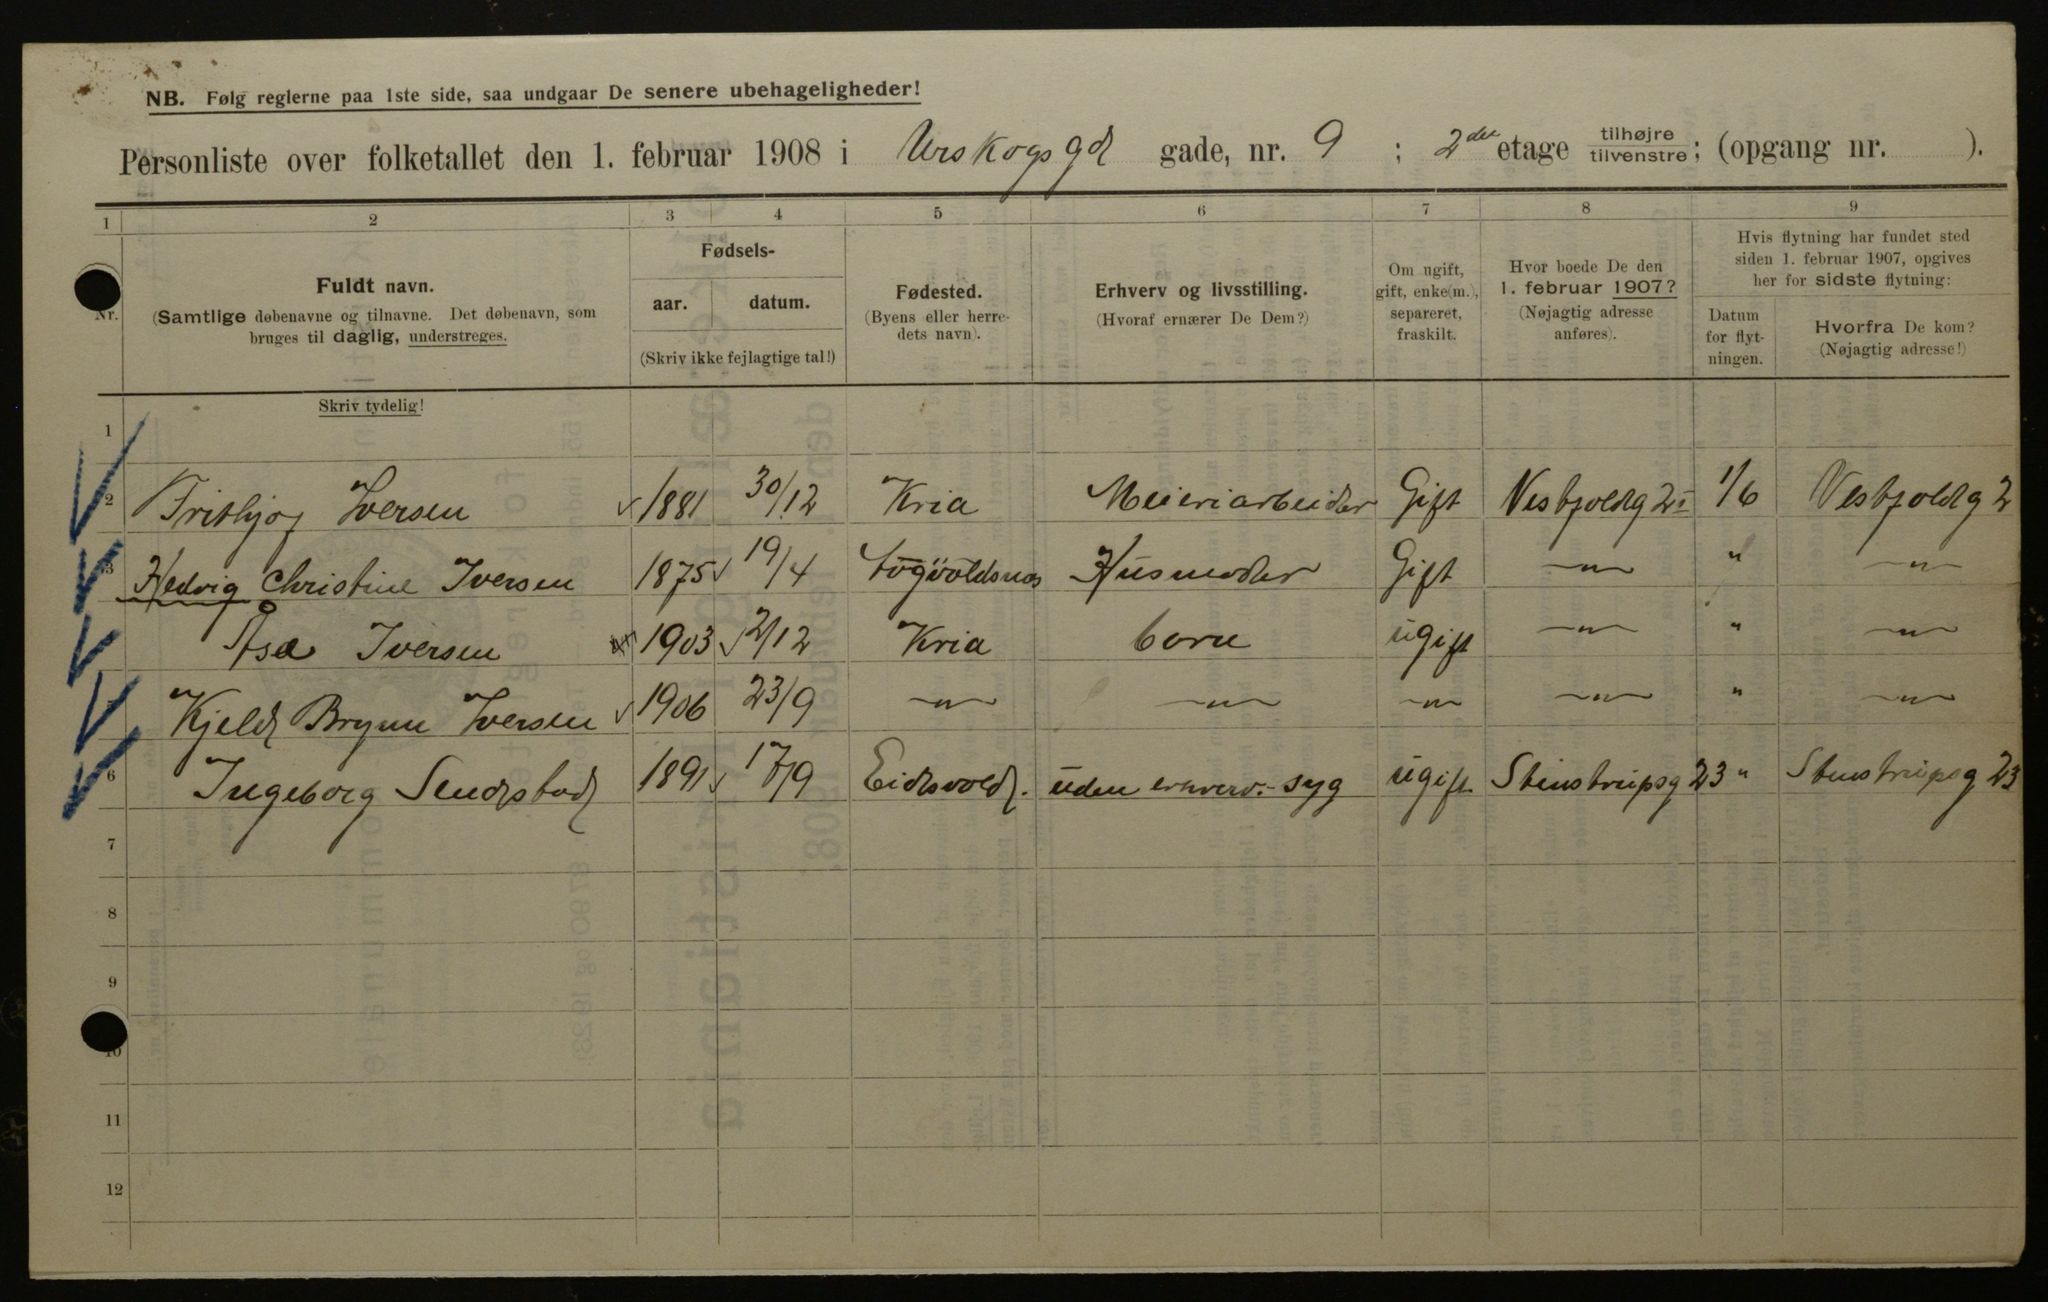 NB. Følg reglerne paa 1ste side, saa undgaar De senere ubehageligheder!
Personliste over folketallet den 1. februar 1908 i Urskogsgd gade, nr. 9 ; 2den etage tilhøjre tilvenstre; (opgang nr. ).
1 2 3 4 5 6 7 8 9
Nr.
Fuldt navn.
(Samtlige døbenavne og tilnavne. Det døbenavn, som
bruges til daglig, understreges.
Skriv tydelig!
Fødsels-
aar. datum.
(Skriv ikke fejlagtige tal!)
Fødested.
(Byens eller herre-
dets navn).
Erhverv og livsstilling.
(Hvoraf ernærer De Dem?)
Om ugift,
gift, enke(m.),
separeret,
fraskilt.
Hvor boede De den
1. februar 1907?
(Nøjagtig adresse
anføres).
Hvis flytning har fundet sted
siden 1. februar 1907, opgives
her for sidste flytning:
Datum
for flyt-
ningen.
Hvorfra De kom?
(Nøjagtig adresse!)
1
2 Fritbjof Iversen 1881 30/12 Kria Meieriarbeider Gift Vestfoldg 2 1/6 Vestfoldg 2
3 Hedvig Christine Iversen 1875 19/4 Husmoder Gift —"— " —"—
Åsa Iversen 1903 2/12 Kria barn ugift —"— " —"—
Kjeld Brynn Iversen 1906 23/9 —"— —"— —"— —"— " —"—
6 Ingeborg Sendstad 1891 17/9 Eidsvold. uden erhverv.- syg ugift Stenstrupsg 23 " Stenstrupsg 23
7
8
9
10
11
12